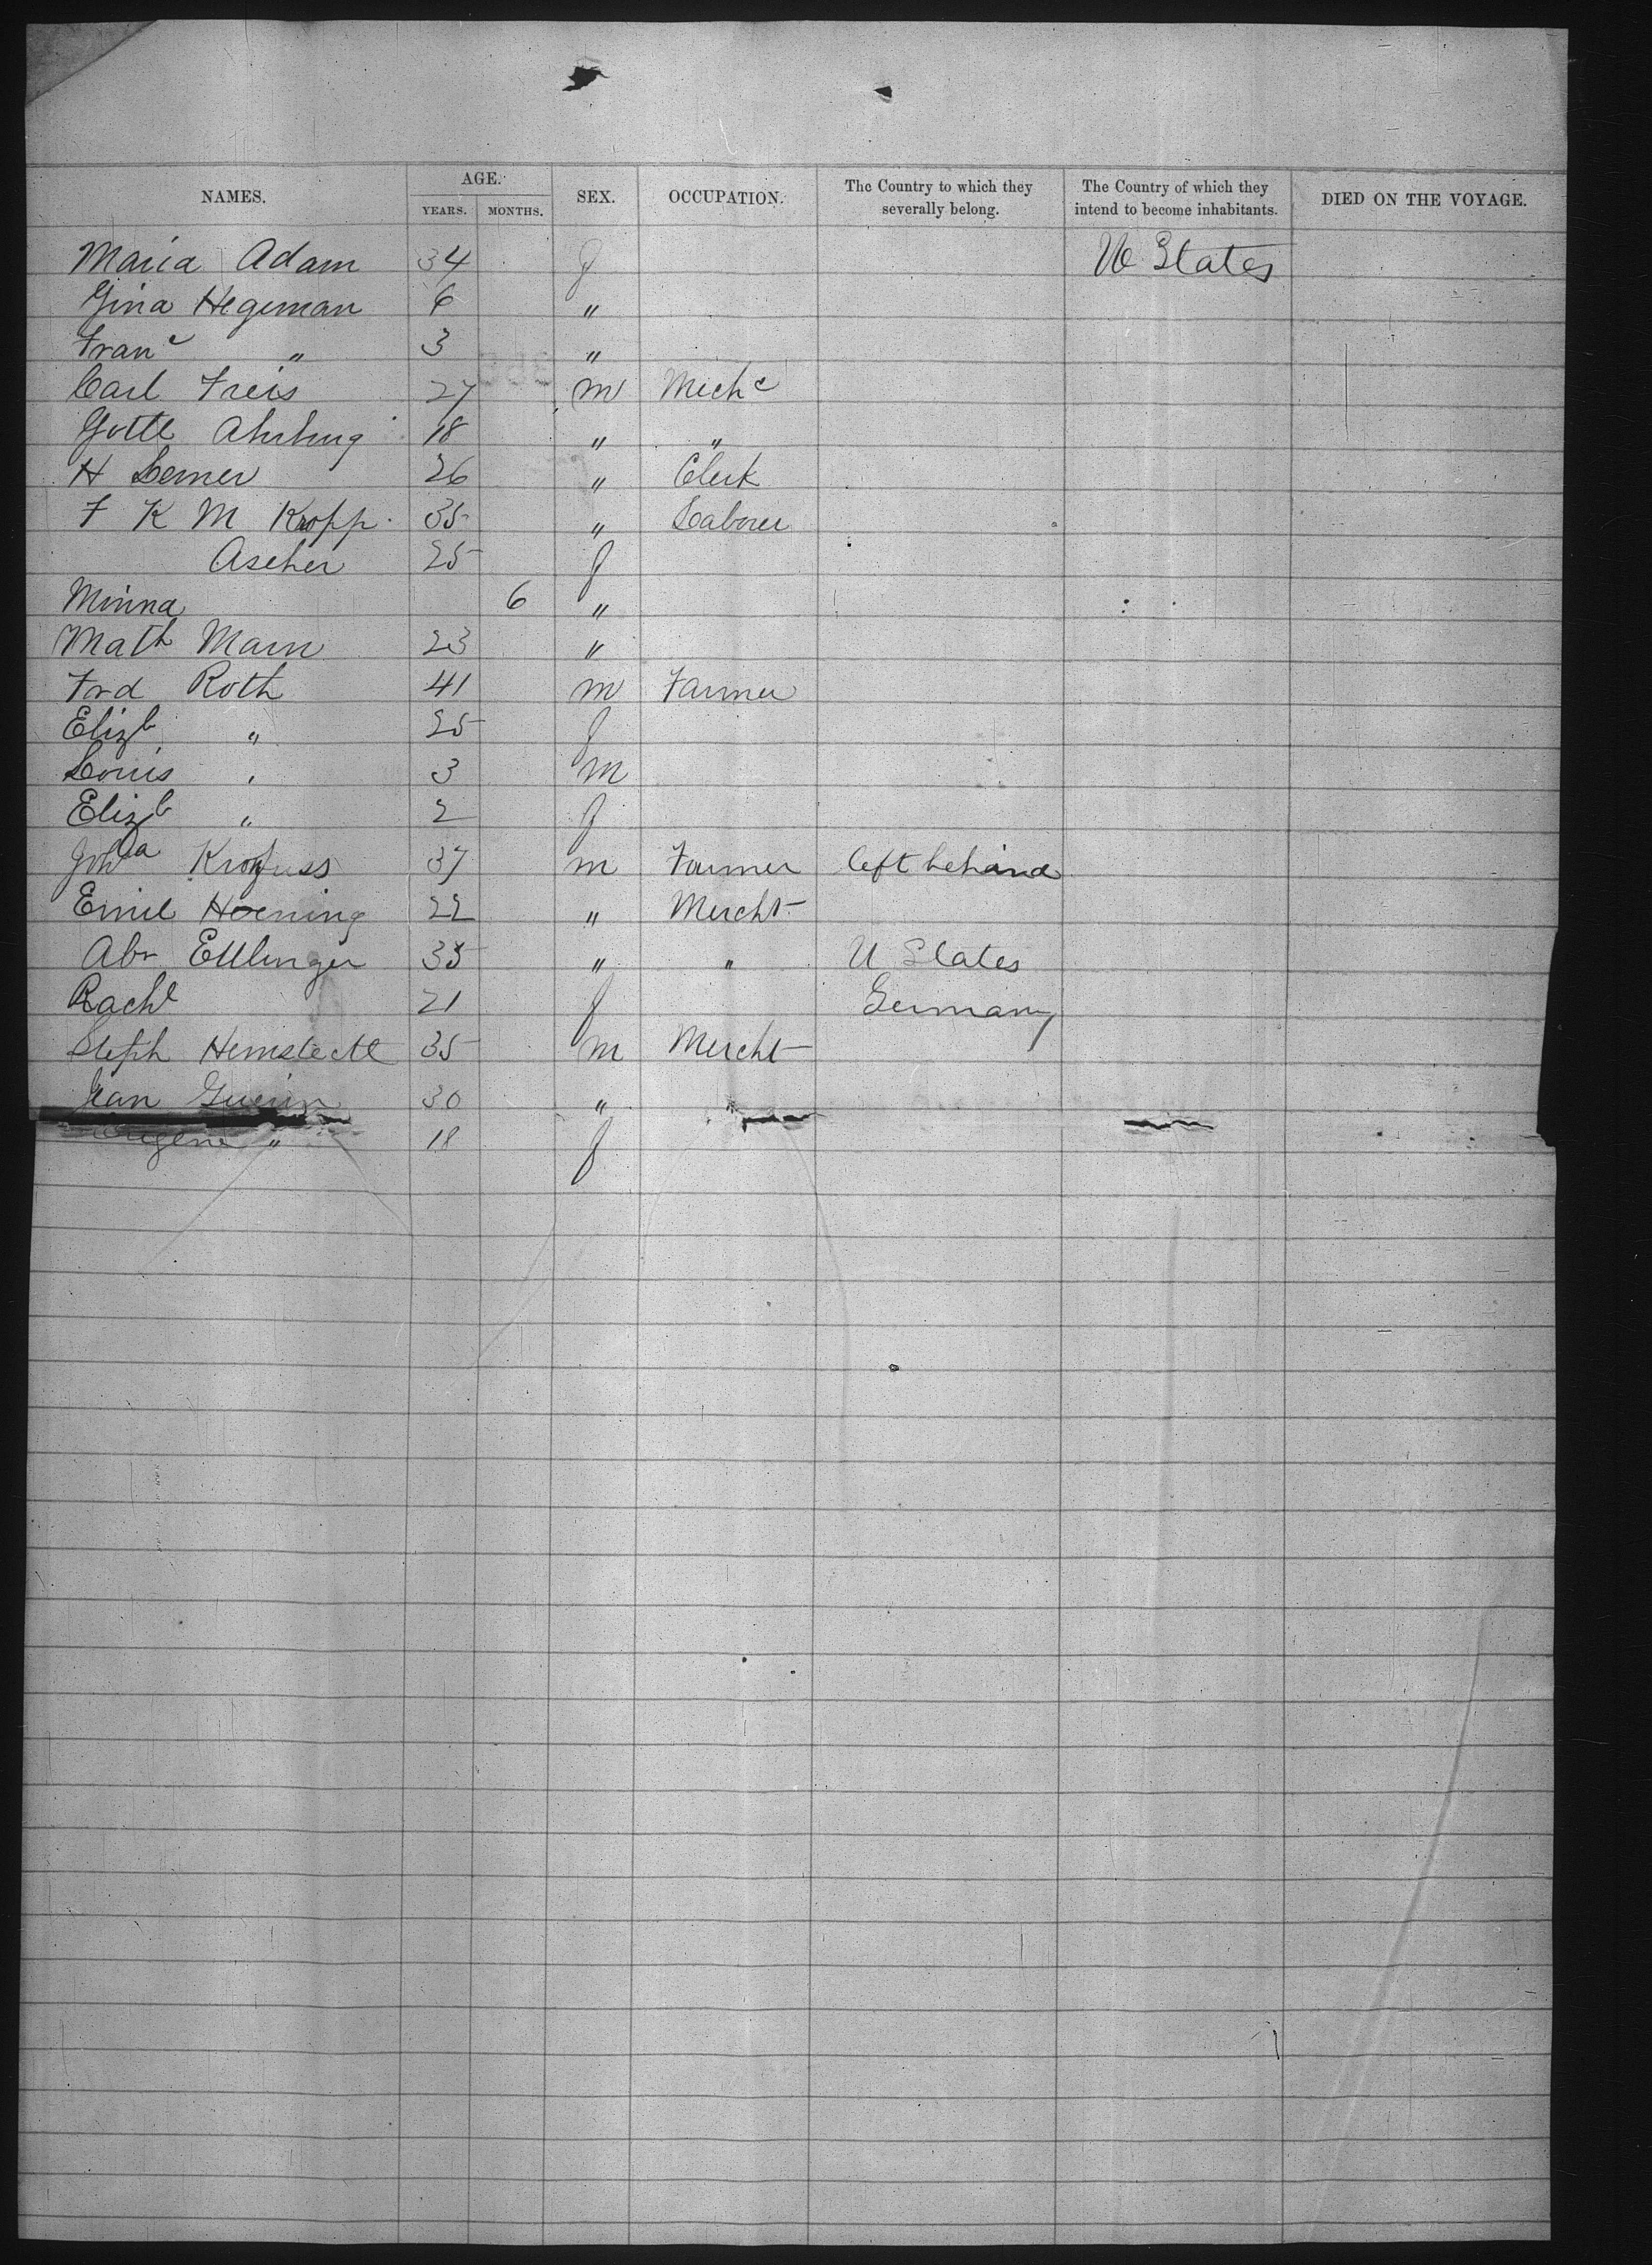 NAMES. AGE. YEARS. MONTHS. SEX. OCCUPATION. The Country to which they severally belong. The Country of which they intend to become inhabitants. DIED ON THE VOYAGE.
Maria Adam 34 f U States
Gina Hegeman 6 "
Franc " 3 "
Carl Freis 27 m Mechc
Gottl 18 " "
H Lerner 26 " Clerk
F K M Kropp 35 " Laborer
Ascher 25 f
Minna 6 "
Math Marn 23 "
Frd Roth 41 m Farmer
Elizb " 25 f
Louis " 3 m
Elizb " 2 f
Joh Kronfuss 37 m Farmer left behind
Emil Hoening 22 " Mercht
Abr Ettlinger 35 " " U States
Rachl 21 f Germany
Steph 35 m Mercht
Jean Guerin 30 " "
Eugene " 18 f